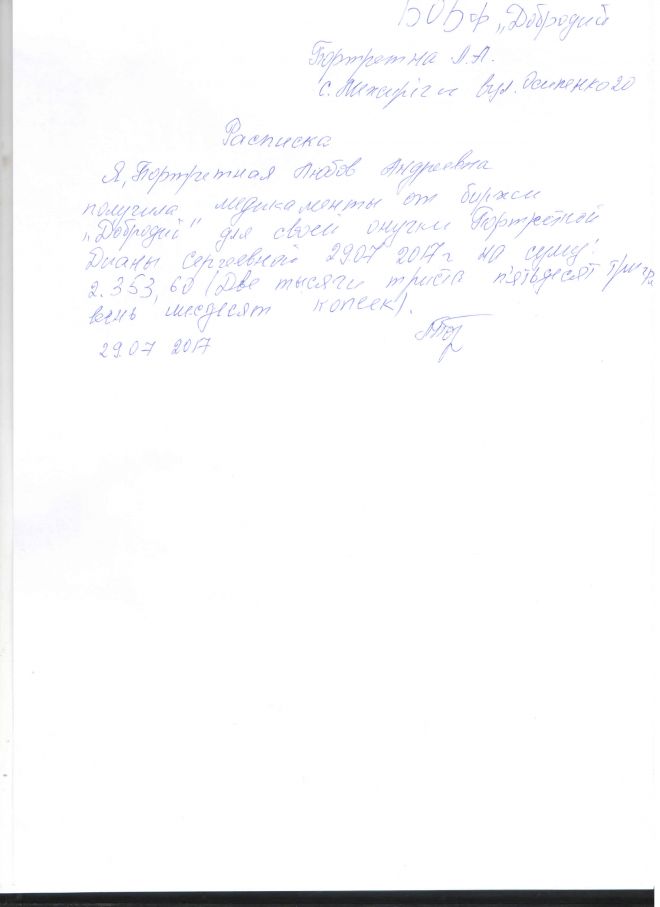 БОБФ „Добродий
Портретна Л.А.
с. вул. Осипенко 20
Расписка
Я, Портретная Любов Андреевна
получила медикаменты от биржи
„Добродий" для своей онучки Портретной
Дианы Сергеевной 29.07 2017г на суму:
2.353,60 (Две тысячи триста п'ятьдесят три гри
вень шесдесят копеек).
29.07 2017